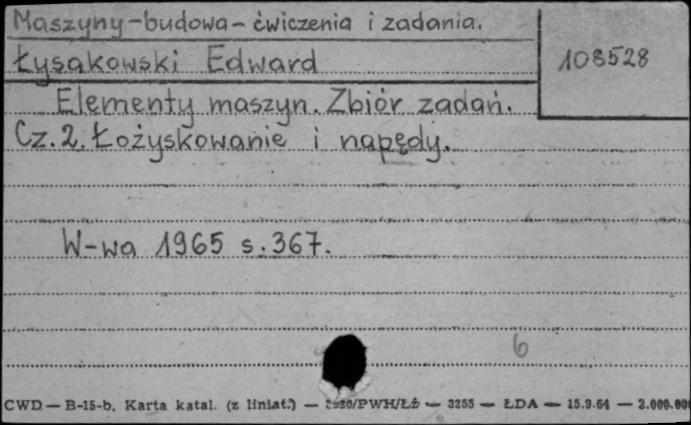 Maszyny-budowa-ćwiczenia i zadania.
Łysakowski Edward
108528
Elementy maszyn. Zbiór zadań.
Cz. 2. Łożyskowanie i napędy.
W-wa 1965 s. 367.
6
CWD — B-15-b, Karta katal. (z liniat.) — /PWH/Łb — 3255 — ŁDA — 15.9.64 — 2.000.00